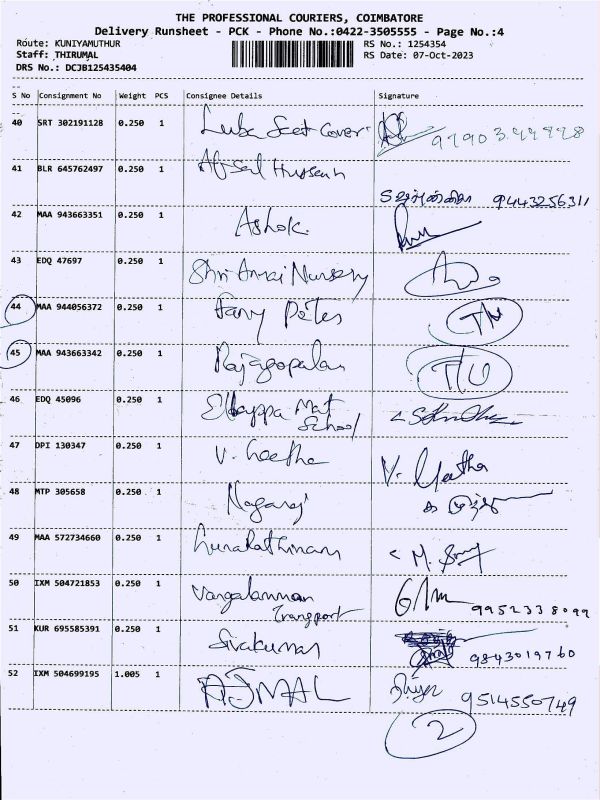 THE PROFESSIONAL COURIERS, COIMBATORE
Delivery Runsheet - PCK - Phone No.:0422-3505555 - Page No.:4
Route: KUNIYAMUTHUR RS No.: 1254354
Staff: THIRUMAL RS Date: 07-Oct-2023
DRS No.: DCJB125435404
S No Consignment No Weight PCS Consignee Details Signature
40 SRT 302191128 0.250 1 Luba Seet Cover
41 BLR 645762497 0.250 1 Afsal Hussain 9443256311
42 MAA 943663351 0.250 1 Ashok
43 EDQ 47697 0.250 1 Shri Annai Nursery
44 MAA 944056372 0.250 1 Fany Petes
45 MAA 943663342 0.250 1 Rajagopalan
46 EDQ 45096 0.250 1 Ellappa Mat
School
47 DPI 130347 0.250 1 V. Geetha V. Geetha
48 MTP 305658 0.250 1 Nagaraj
49 MAA 572734660 0.250 1 M.
50 IXM 504721853 0.250 1 9952338099
Transport
51 KUR 695585391 0.250 1 Sivakumar 9843019760
52 IXM 504699195 1.005 1 AJMAL 9514550749
2